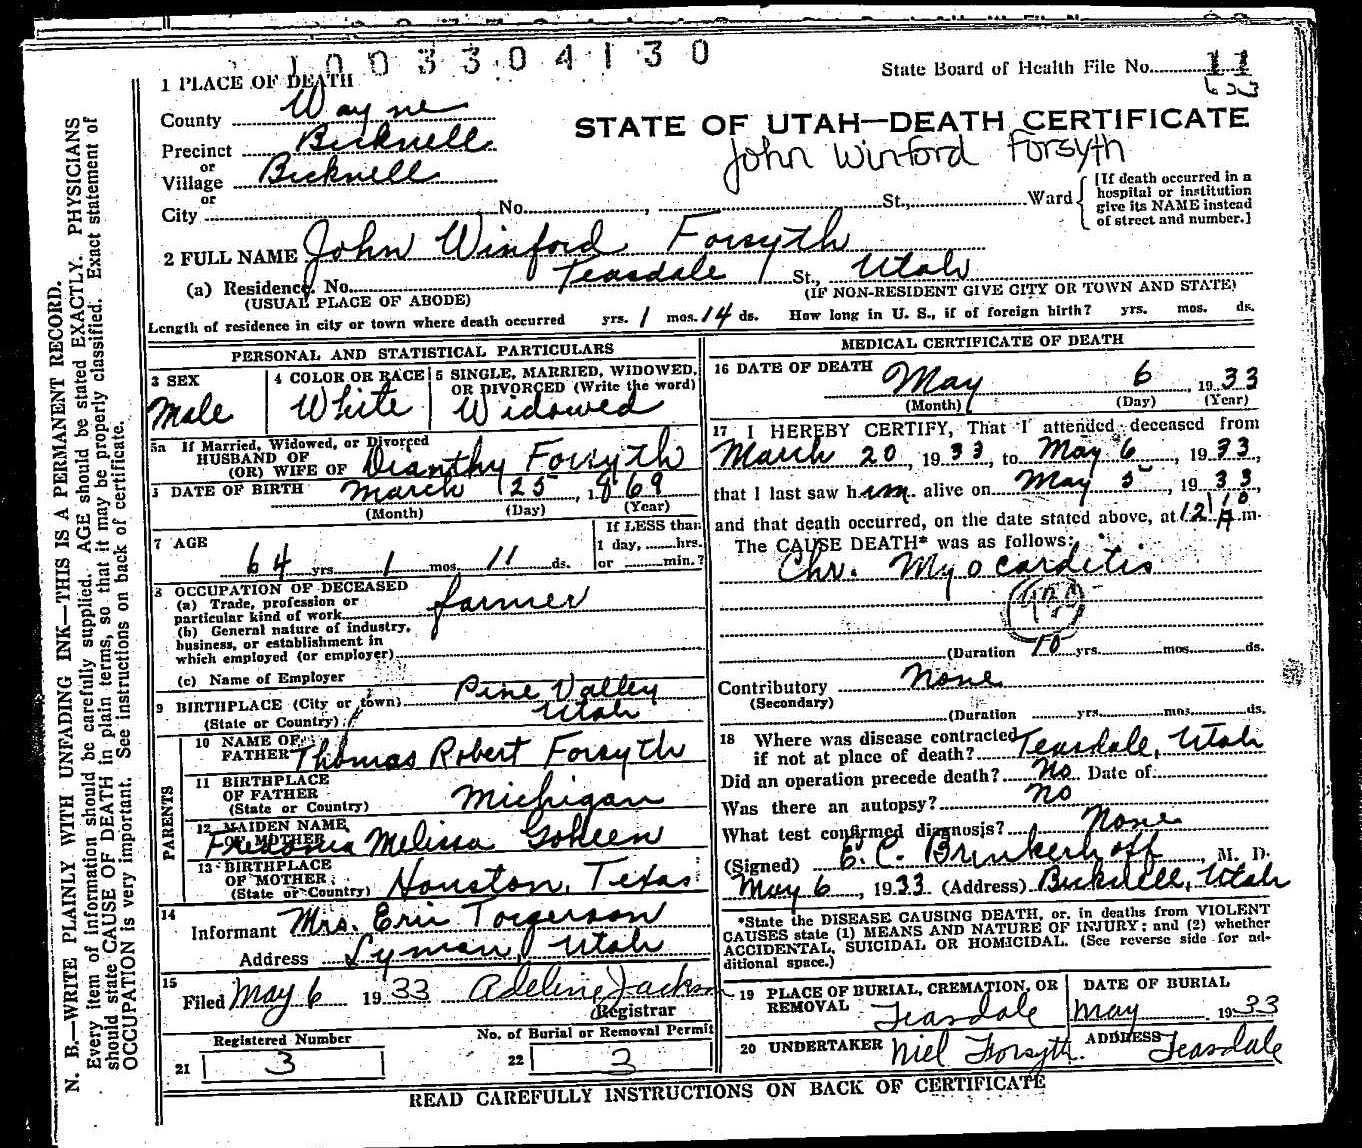 1003304130
State Board of Health File No. 11
1 PLACE OF DEATH
County Wayne
Precinct Bicknell
or
Village Bicknell
or
City No. , St., Ward
STATE OF UTAH—DEATH CERTIFICATE
John Winford Forsyth
[If death occurred in a
hospital or institution
give its NAME instead
of street and number.]
2 FULL NAME John Winford Forsyth
(a) Residence. No. Teasdale St., Utah
(USUAL PLACE OF ABODE) (IF NON-RESIDENT GIVE CITY OR TOWN AND STATE)
Length of residence in city or town where death occurred yrs. 1 mos. 14 ds. How long in U. S., if of foreign birth? yrs. mos. ds.
PERSONAL AND STATISTICAL PARTICULARS
3 SEX
Male
4 COLOR OR RACE
White
5 SINGLE, MARRIED, WIDOWED,
OR DIVORCED (Write the word)
Widowed
5a If Married, Widowed, or Divorced
HUSBAND OF
(OR) WIFE OF Dianthy Forsyth
DATE OF BIRTH March 25, 1869
(Month) (Day) (Year)
7 AGE
64 yrs. 1 mos. 11 ds.
If LESS than
1 day, hrs.
or min.?
8 OCCUPATION OF DECEASED
(a) Trade, profession or
particular kind of work farmer
(b) General nature of industry,
business, or establishment in
which employed (or employer)
(c) Name of Employer
9 BIRTHPLACE (City or town) Pine Valley
(State or Country) Utah
PARENTS
10 NAME OF
FATHER Thomas Robert Forsyth
11 BIRTHPLACE
OF FATHER
(State or Country) Michigan
12 MAIDEN NAME
OF MOTHER Melissa Goheen
13 BIRTHPLACE
OF MOTHER
(State or Country) Houston, Texas
14
Informant Mrs. Erin Torgerson
Address Lyman, Utah
15
Filed May 6 1933 Adeline Jackson
Registrar
Registered Number
21 3
No. of Burial or Removal Permit
22 3
MEDICAL CERTIFICATE OF DEATH
16 DATE OF DEATH May 6, 1933
(Month) (Day) (Year)
17 I HEREBY CERTIFY, That I attended deceased from
March 20, 1933, to May 6, 1933,
that I last saw him alive on May 5, 1933,
and that death occurred, on the date stated above, at 12:10 A m.
The CAUSE DEATH* was as follows:
Chr. Myocarditis
(Duration 10 yrs. mos. ds.
Contributory None
(Secondary)
(Duration yrs. mos. ds.
18 Where was disease contracted
if not at place of death? Teasdale, Utah
Did an operation precede death? No Date of
Was there an autopsy? No
What test confirmed diagnosis? None
(Signed) E. C. Brinkerhoff, M. D.
May 6, 1933 (Address) Bicknell, Utah
*State the DISEASE CAUSING DEATH, or, in deaths from VIOLENT
CAUSES state (1) MEANS AND NATURE OF INJURY; and (2) whether
ACCIDENTAL, SUICIDAL OR HOMICIDAL. (See reverse side for ad-
ditional space.)
19 PLACE OF BURIAL, CREMATION, OR
REMOVAL Teasdale
DATE OF BURIAL
May 1933
20 UNDERTAKER Niel Forsyth ADDRESS Teasdale
READ CAREFULLY INSTRUCTIONS ON BACK OF CERTIFICATE
N. B.—WRITE PLAINLY WITH UNFADING INK—THIS IS A PERMANENT RECORD.
Every item of information should be carefully supplied. AGE should be stated EXACTLY. PHYSICIANS
should state CAUSE OF DEATH in plain terms, so that it may be properly classified. Exact statement of
OCCUPATION is very important. See instructions on back of certificate.